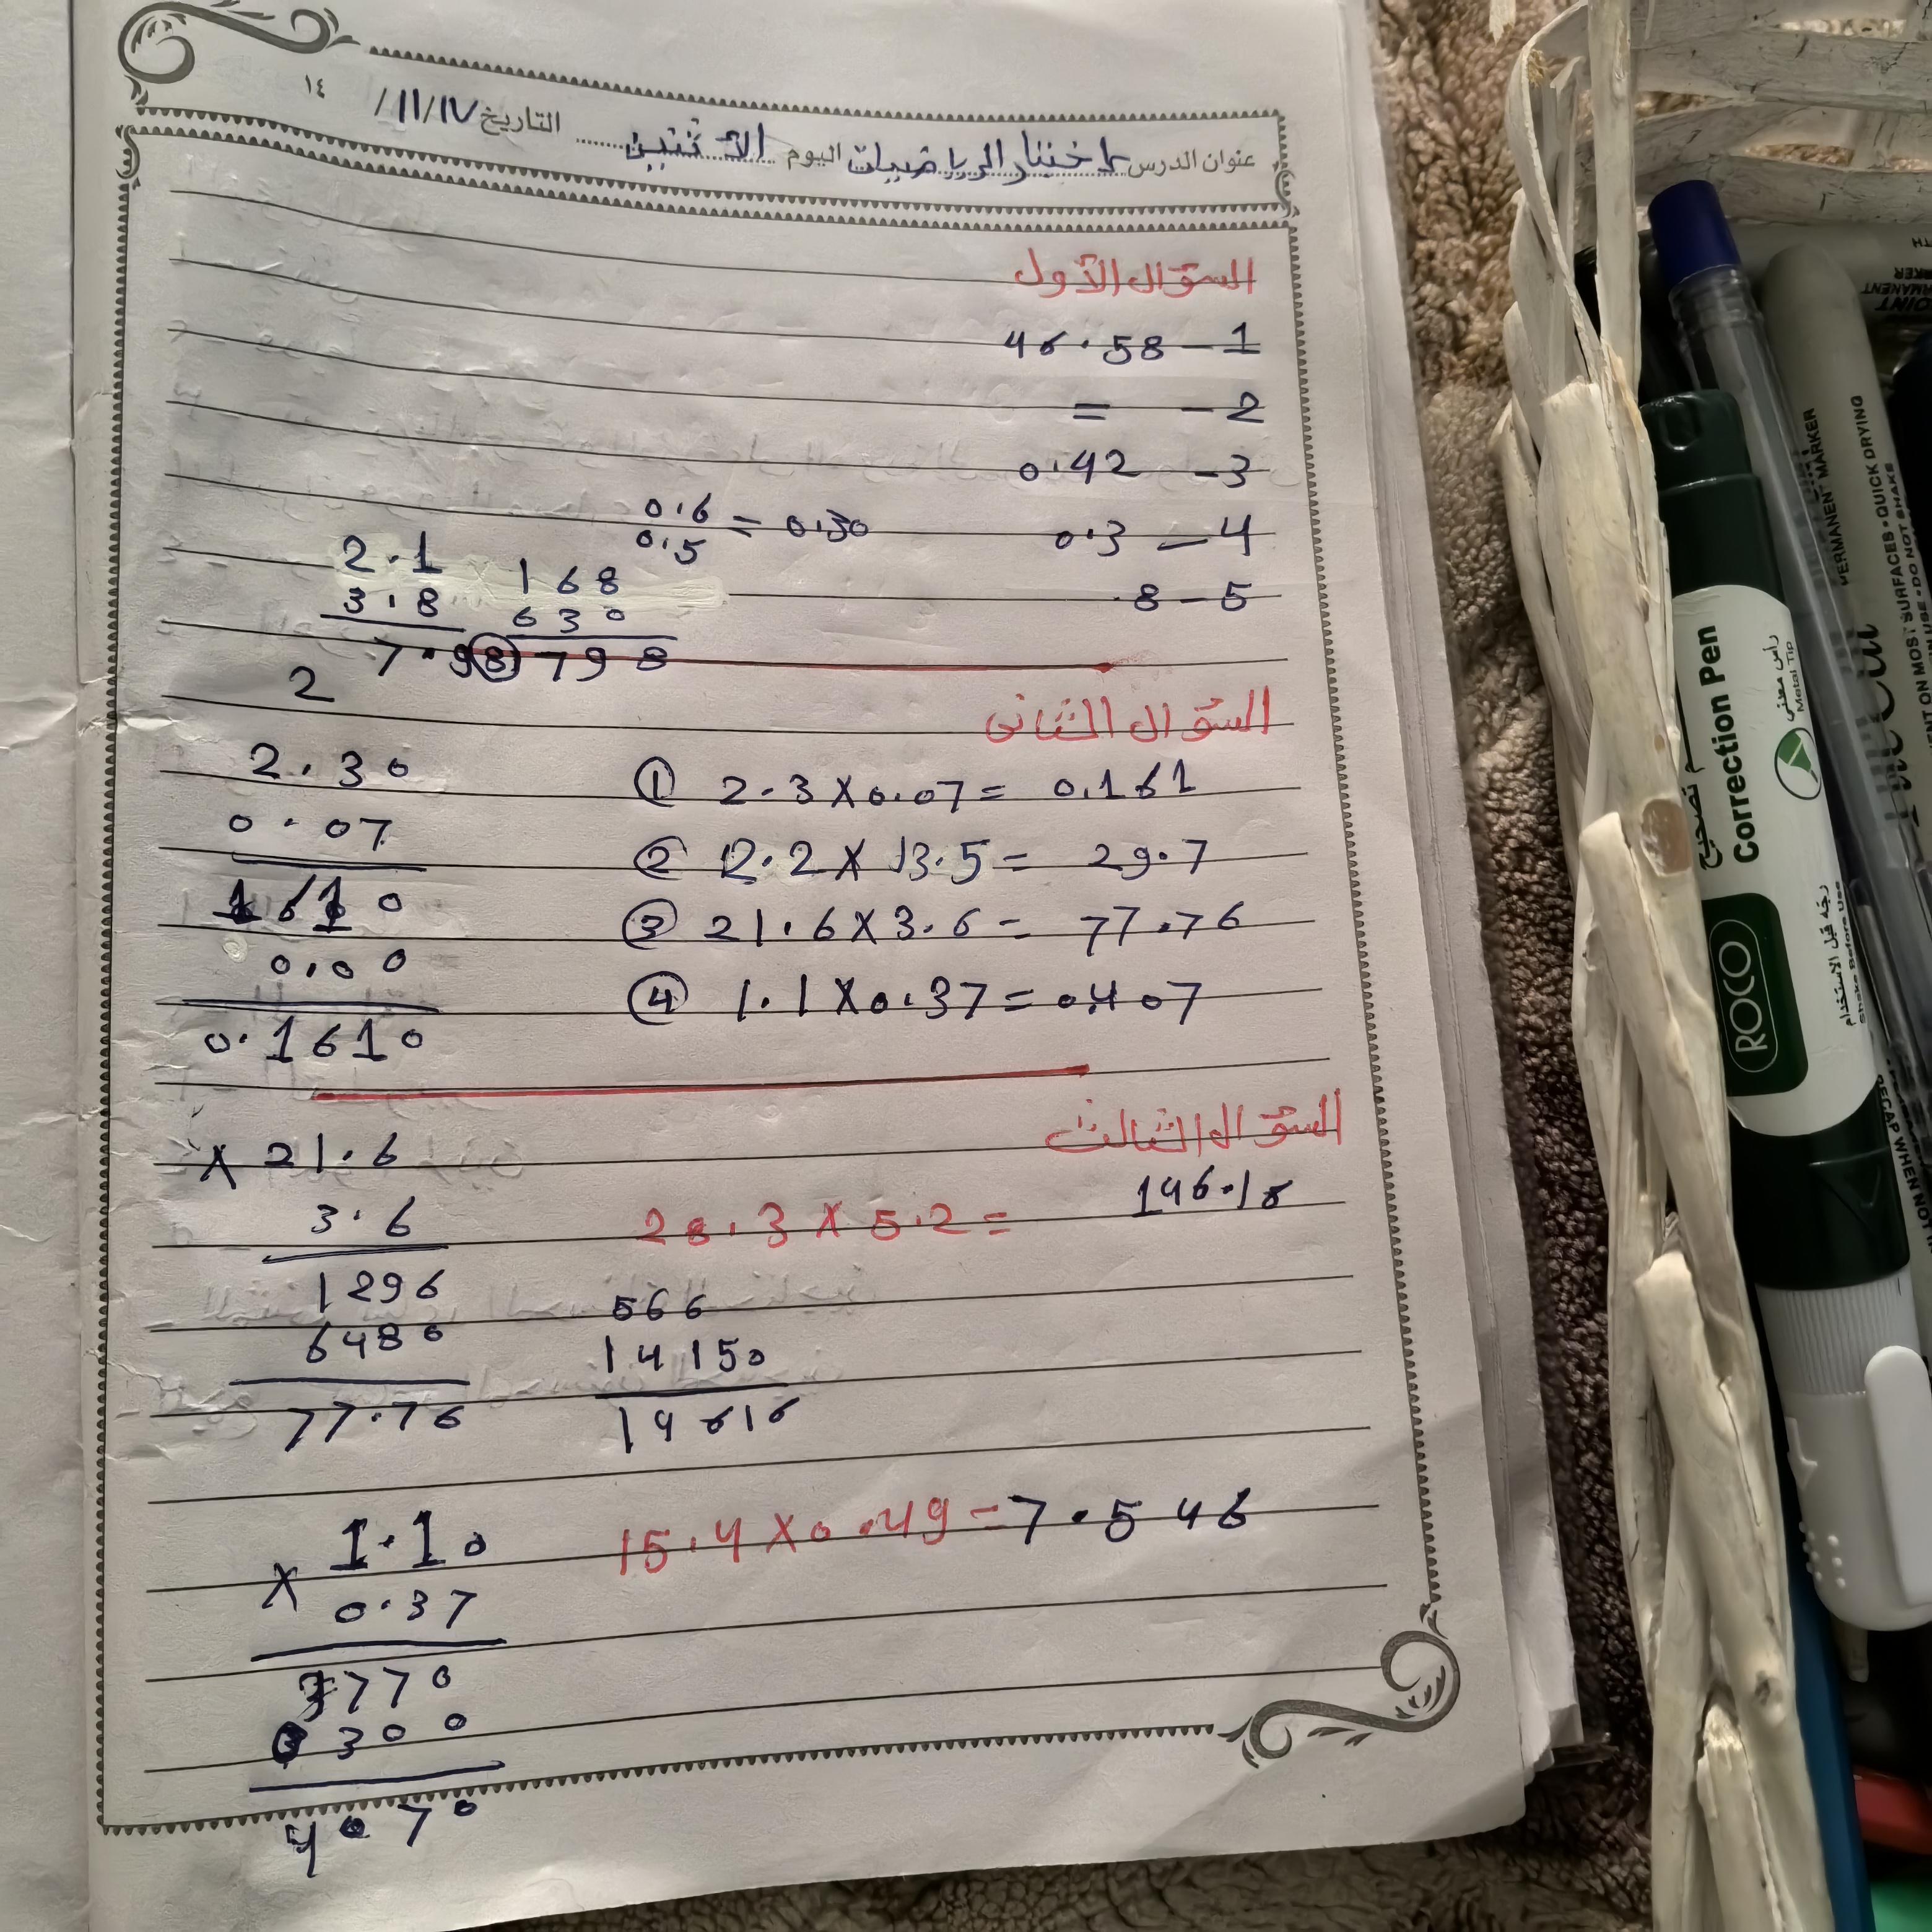 ١٤
عنوان الدرس اختبار الرياضيات اليوم الأثنين التاريخ ١٧/١١/
السؤال الأول
46.58 - 1
= - 2
0.42 - 3
0.6
0.5 = 0.30
0.3 - 4
8 - 5
2.1
3.8
7.98
168
630
798
2
السؤال الثاني
① 2.3 X 0.07 = 0.161
② 2.2 X 13.5 = 29.7
③ 21.6 X 3.6 = 77.76
④ 1.1 X 0.37 = 0.407
2.30
0.07
1610
0.00
0.1610
السؤال الثالث
28.3 X 5.2 = 146.16
566
14150
14616
X 21.6
3.6
1296
6480
77.76
15.4 X 0.49 = 7.546
1.10
X 0.37
770
300
4070
Correction Pen
رأس معدني
Metal Tip
ROCO
رجّه قبل الاستخدام
Shake Before Use
PERMANENT MARKER
MOST SURFACES • QUICK DRYING